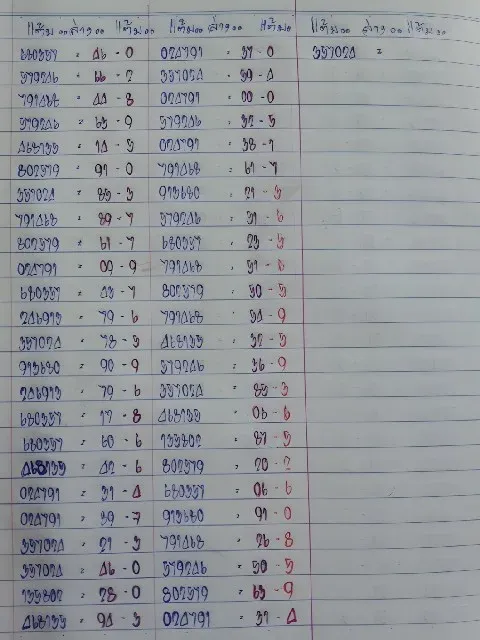 แต้ม ล่าง แต้ม แต้ม ล่าง แต้ม แต้ม ล่าง แต้ม
680357 = 46 - 0 024791 = 37 - 0 357024 =
579246 = 66 - 2 357024 = 59 - 4
791468 = 44 - 8 024791 = 00 - 0
579246 = 63 - 9 579246 = 32 - 5
468135 = 14 - 5 024791 = 38 - 1
802579 = 91 - 0 791468 = 61 - 7
357024 = 85 - 3 913680 = 21 - 3
791468 = 89 - 7 579246 = 51 - 6
802579 = 61 - 7 680357 = 23 - 5
024791 = 09 - 9 791468 = 51 - 6
680357 = 43 - 7 802579 = 50 - 5
246913 = 79 - 6 791468 = 54 - 9
357024 = 78 - 5 468135 = 32 - 5
913680 = 90 - 9 579246 = 36 - 9
246913 = 79 - 6 357024 = 85 - 3
680357 = 17 - 8 468135 = 06 - 6
680357 = 60 - 6 135802 = 87 - 5
468135 = 42 - 6 802579 = 20 - 2
024791 = 31 - 4 680357 = 06 - 6
024791 = 39 - 2 913680 = 91 - 0
357024 = 21 - 3 791468 = 26 - 8
357024 = 46 - 0 579246 = 50 - 5
135802 = 28 - 0 802579 = 63 - 9
468135 = 94 - 3 024791 = 31 - 4